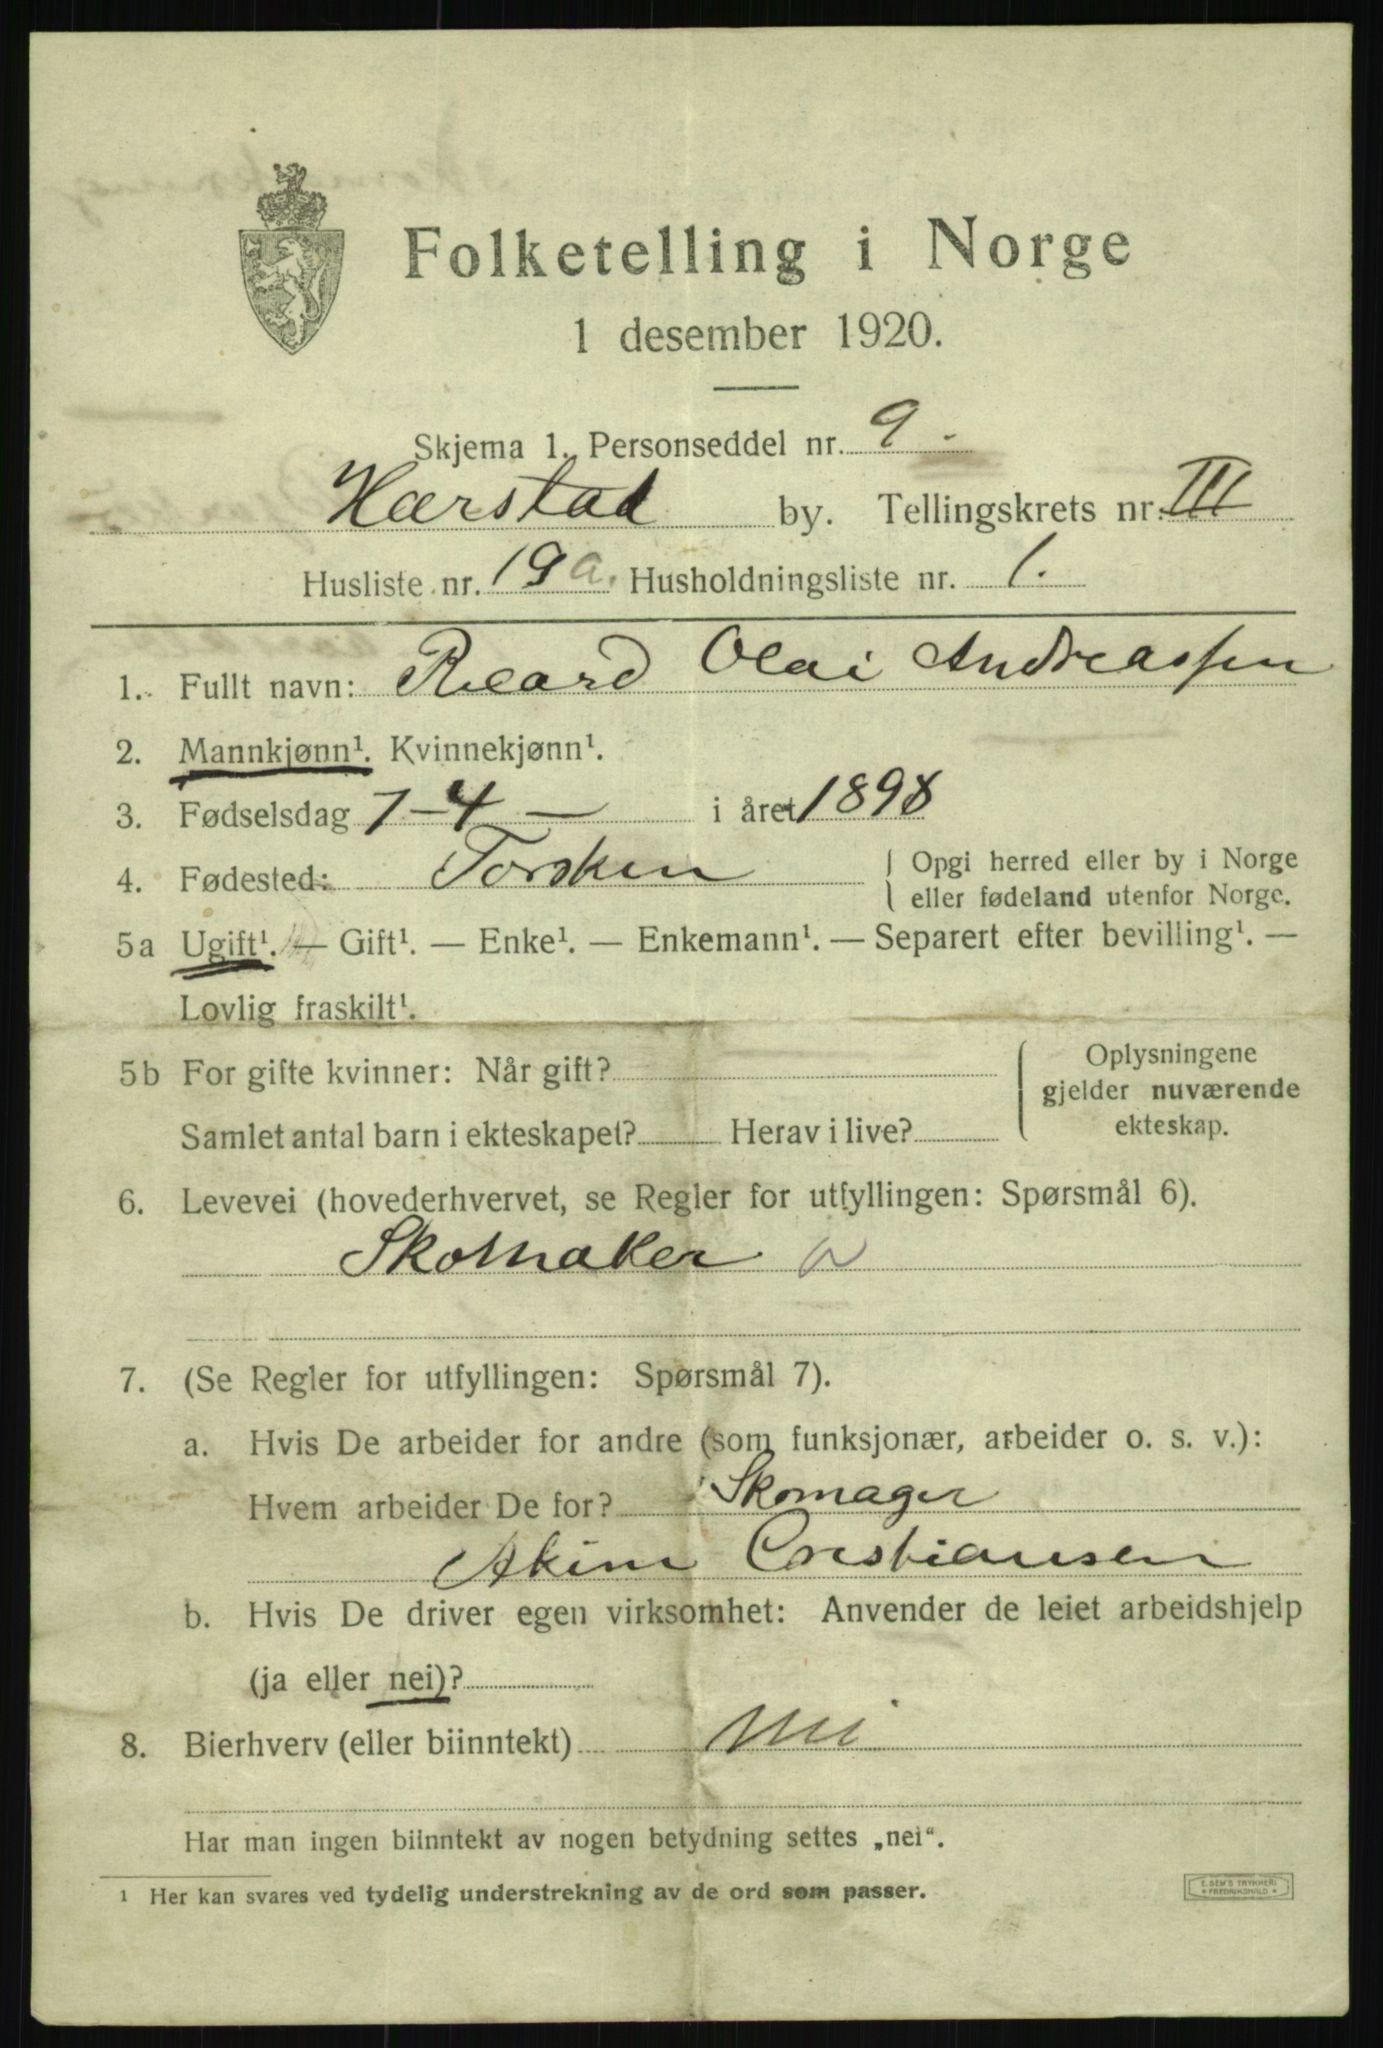 Folketelling i Norge
1 desember 1920.
Skjema 1. Personseddel nr. 9.
Harstad by. Tellingskrets nr. III
Husliste nr. 19a. Husholdningsliste nr. 1.
1. Fullt navn: Rikard Olai Andreassen
2. Mannkjønn¹. Kvinnekjønn¹.
3. Fødselsdag 7-4 — i året 1898
4. Fødested: Torsken { Opgi herred eller by i Norge
eller fødeland utenfor Norge.
5a Ugift¹. — Gift¹. — Enke¹. — Enkemann¹. — Separert efter bevilling¹. —
Lovlig fraskilt¹.
5b For gifte kvinner: Når gift?
Samlet antal barn i ekteskapet? Herav i live?
Oplysningene
gjelder nuværende
ekteskap.
6. Levevei (hovederhvervet, se Regler for utfyllingen: Spørsmål 6).
Skomaker
7. (Se Regler for utfyllingen: Spørsmål 7).
a. Hvis De arbeider for andre (som funksjonær, arbeider o. s. v.):
Hvem arbeider De for? Skomager
Akim Cristiansen
b. Hvis De driver egen virksomhet: Anvender de leiet arbeidshjelp
(ja eller nei)?
8. Bierhverv (eller biinntekt) nei
Har man ingen biinntekt av nogen betydning settes „nei“.
1 Her kan svares ved tydelig understrekning av de ord som passer.
E. SEM'S TRYKKERI
FREDRIKSHALD